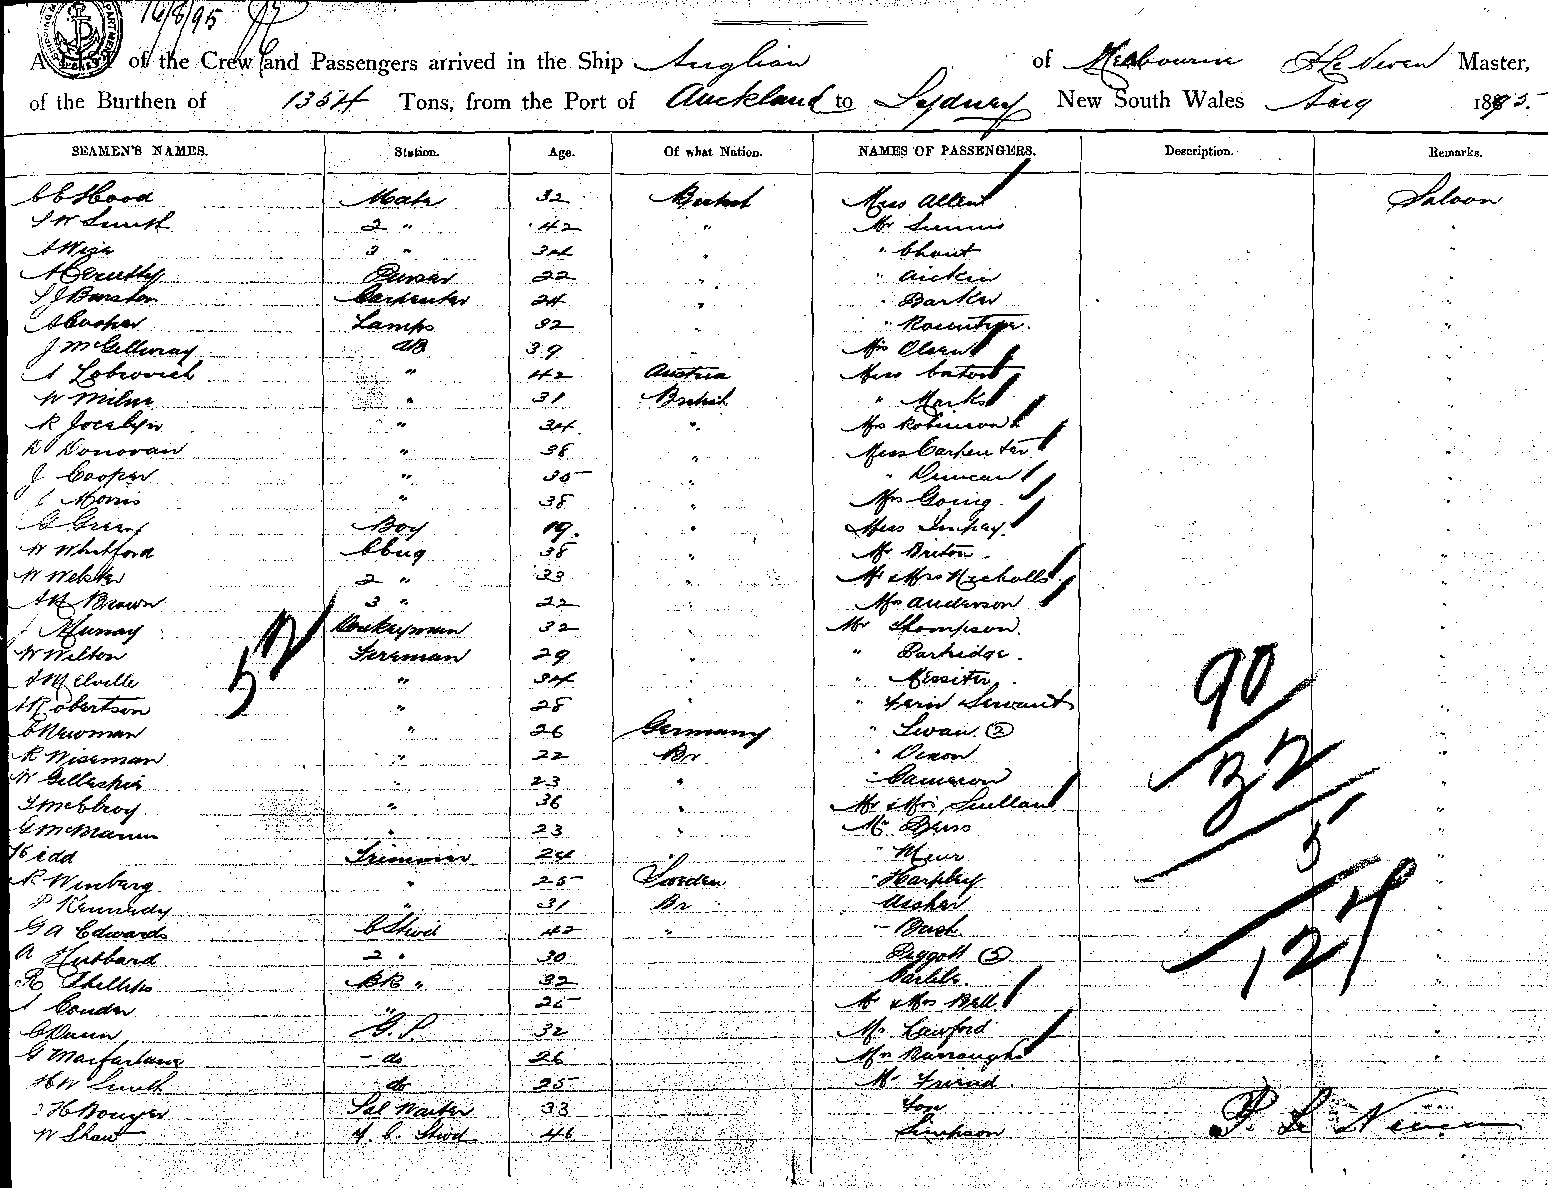 16/8/95
A List of the Crew and Passengers arrived in the Ship Anglian of Melbourne Master,
of the Burthen of 1354 Tons, from the Port of Auckland to Sydney New South Wales Aug 1895.
SEAMEN'S NAMES. Station. Age. Of what Nation. NAMES OF PASSENGERS. Description. Remarks.
C E Hood Mate 32 British Miss Allen Saloon
W Smith 2 " 42 " Mr "
3 " 34 " " "
Purser 22 " " Aicken "
Carpenter 24 " " Barker "
A Cooper Lamps 32 " " "
J McGillivray AB 39 Mrs Olsen "
Lobrovich " 42 Austria Miss "
W Milne " 31 British " Marks "
R Jocelyn " 34 " Mrs Robinson "
D Donovan " 38 " Miss Carpenter "
J Cooper " 35 " " Duncan "
Morris " 38 " Mrs Going "
G Green Boy 19 " Miss Impey "
W Whitford C Eng 38 " Mr Briton "
W Webster 2 " 33 " Mr & Mrs Nicholls "
Brown 3 " 22 " Mrs Anderson "
Murray Donkeyman 32 " Mr Thompson "
W Wilton Fireman 29 " " Partridge "
Melville " 34 " " Messiter "
Robertson " 28 " " Servant "
C Newman " 26 Germany " Swan (2) "
R Wiseman " 22 Br " Dixon "
W Gillespie " 23 " " Cameron "
McElroy " 36 " Mr & Mrs "
G McManus " 23 " Mr "
Kidd Trimmer 24 " " Muir "
R Winberg " 25 Sweden " Harpley "
P Kennedy " 31 Br Ascher "
G A Edwards C Stwd 42 " " Bush "
A Hubbard 2 " 30 Piggott "
R Phillips BR " 32 Carlile "
" 25 Mr & Mrs Bell "
C Dunn G.S. 32 Mr Lawford "
G Macfarlane - do 26 Mrs Burroughs "
H W Smith do 25 Mr Friend
H Bouger Sal Waiter 33 Fox
W Shaw Stwd 46 Simpson
52
90
32
5
127